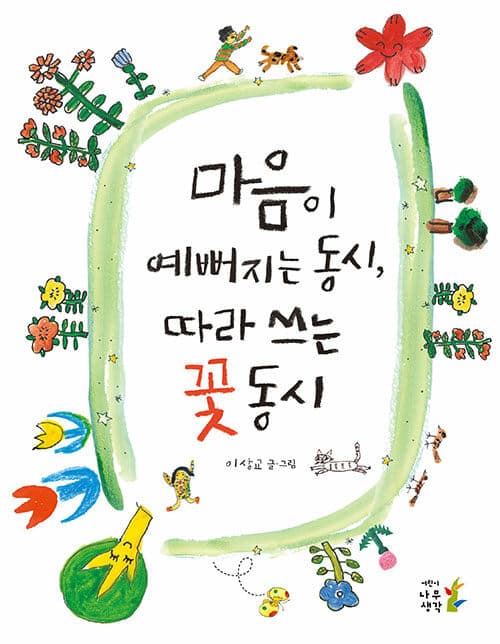 마음이
예뻐지는 동시,
따라 쓰는
꽃 동시
이상교 글·그림
어린이
나무
생각